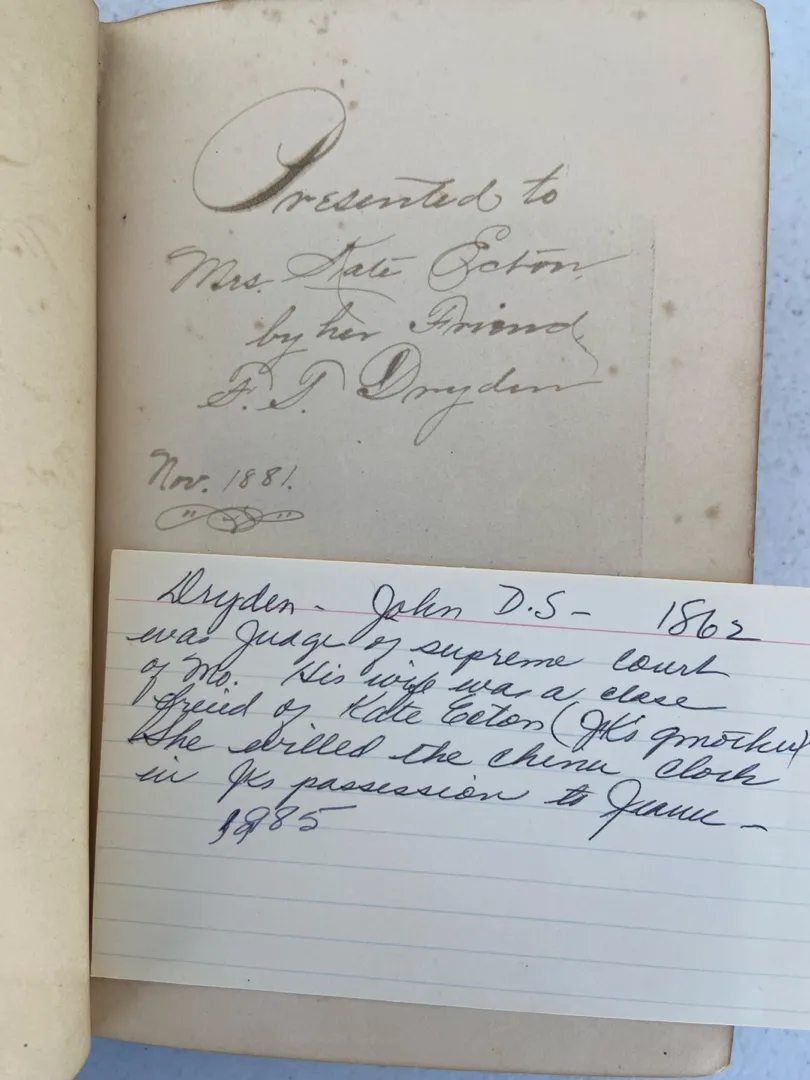 Presented to
Mrs. Kate Ecton
by her Friend
F. T. Dryden
Nov. 1881.
Dryden - John D.S - 1862
was Judge of supreme court
of Mo. His wife was a close
freind of Kate Ecton (JK's gmother)
She willed the chenu clock
in JKs possession to Jeanu -
1985